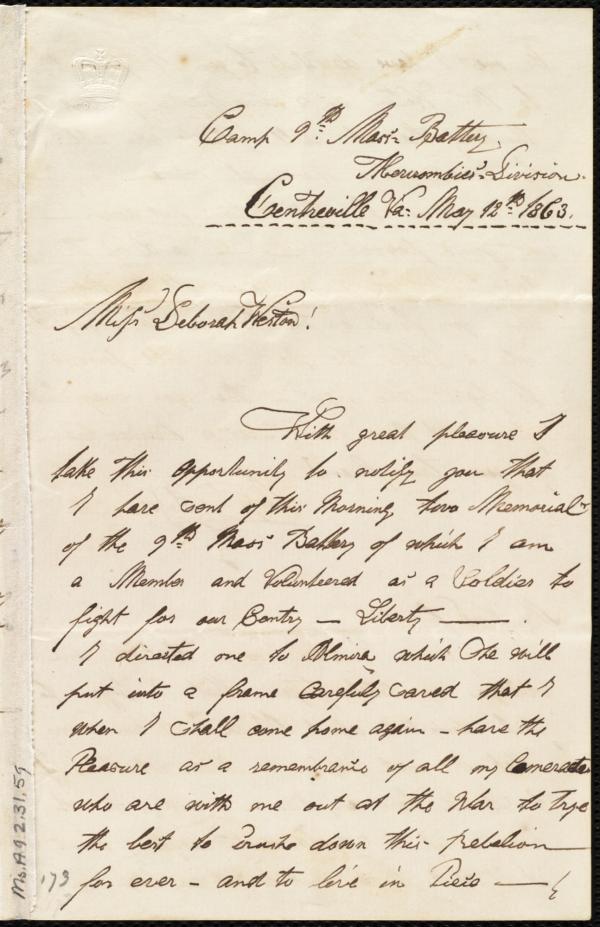 Camp 9th Mass Battery.
Abercrombie's Division.
Centreville Va: May 12th 1863.
Miss Deborah Weston!
With great pleasure I
take this opportunity to notify you that
I have sent of this Morning two Memorial
of the 9th Mass Battery of which I am
a Member and Volunteered as a Soldier to
fight for our Contry — Liberty —.
I directed one to Almira which She will
put into a frame carefuly saved that I
when I shall come home again - have the
Pleasure as a remembrance of all my Comerades
who are with me out at the War to trye
the best to Crushe down this Rebelion
for ever - and to live in Pieis —
Ms.A.9.2.31.59
173